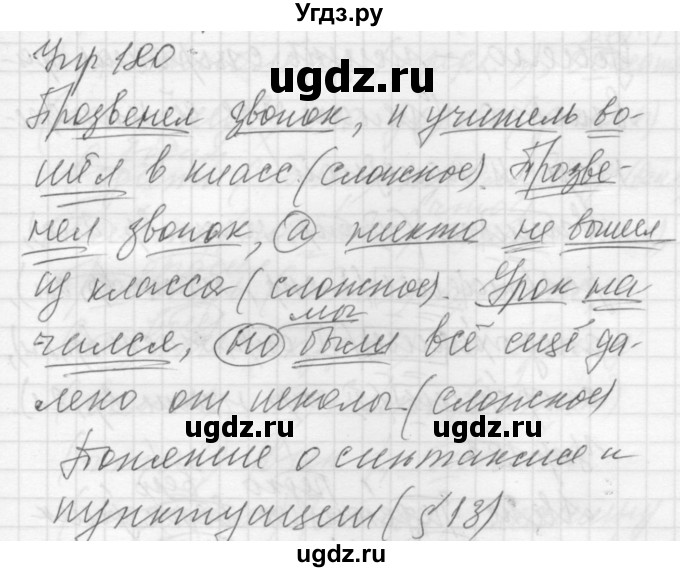 Угдз.ру
Упр 180
ugdz.ru
Прозвенел звонок, и учитель во-
шёл в класс (сложное). Прозве-
нел звонок, а никто не вышел
из класса (сложное). Урок на-
мы
чался, но были всё ещё да-
леко от школы (сложное)
ugdz.ru ugdz.ru
Понятие о синтаксисе и
пунктуации (§ 13)
ugdz.ru